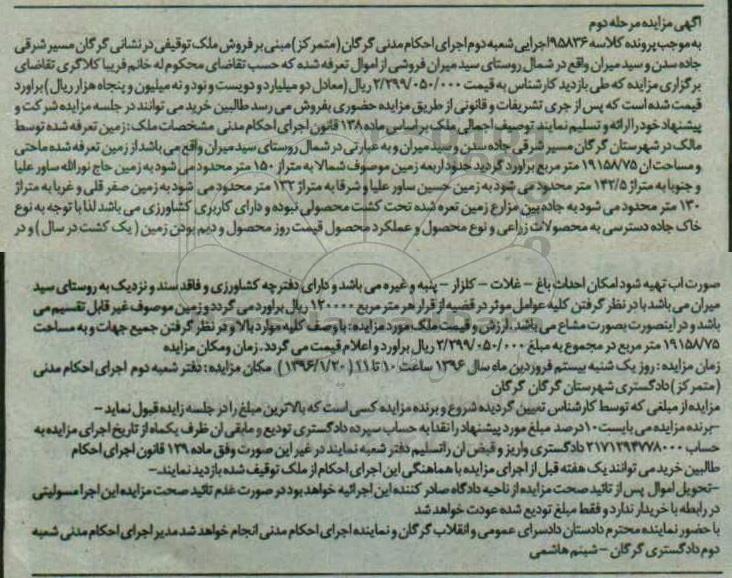 آگهی مزایده مرحله دوم
به موجب پرونده کلاسه ۹۵۸۳۶ اجرایی شعبه دوم اجرای احکام مدنی گرگان (متمرکز) مبنی بر فروش ملک توقیفی در نشانی گرگان مسیر شرقی
جاده سدن و سید میران واقع در شمال روستای سید میران فروشی از اموال تعرفه شده که حسب تقاضای محکوم له خانم فریبا کلاگری تقاضای
برگزاری مزایده که طی بازدید کارشناس به قیمت ۲/۲۹۹/۰۵۰/۰۰۰ ریال (معادل دو میلیارد و دویست و نود و نه میلیون و پنجاه هزار ریال) براورد
قیمت شده است که پس از جری تشریفات و قانونی از طریق مزایده حضوری بفروش می رسد طالبین خرید می توانند در جلسه مزایده شرکت و
پیشنهاد خود را ارائه و تسلیم نمایند توصیف اجمالی ملک بر اساس ماده ۱۳۸ قانون اجرای احکام مدنی مشخصات ملک : زمین تعرفه شده توسط
مالک در شهرستان گرگان مسیر شرقی جاده سدن و سید میران و به عبارتی در شمال روستای سید میران واقع می باشد از زمین تعرفه شده ماحتی
و مساحت ان ۱۹۱۵۸/۷۵ متر مربع براورد گردید حدود اربعه زمین موصوف شمالا به متراژ ۱۵۰ متر محدود می شود به زمین حاج نورالله ساور علیا
و جنوبا به متراژ ۱۴۲/۵ متر محدود می شود به زمین حسین ساور علیا و شرقا به متراژ ۱۳۲ متر محدود می شود به زمین صفر قلی و غربا به متراژ
۱۳۰ متر محدود می شود به جاده بین مزارع زمین تعره شده تحت کشت محصولی نبوده و دارای کاربری کشاورزی می باشد لذا با توجه به نوع
خاک جاده دسترسی به محصولات زراعی و نوع محصول و عملکرد محصول قیمت روز محصول و دیم بودن زمین ( یک کشت در سال ) و در
صورت اب تهیه شود امکان احداث باغ – غلات – کلزار – پنبه و غیره می باشد و دارای دفترچه کشاورزی و فاقد سند و نزدیک به روستای سید
میران می باشد با در نظر گرفتن کلیه عوامل موثر در قضیه از قرار هر متر مربع ۱۲۰۰۰۰ ریال براورد می گردد و زمین موصوف غیر قابل تقسیم می
باشد و در اینصورت بصورت مشاع می باشد . ارزش و قیمت ملک مورد مزایده : با وصف کلیه موارد بالا و در نظر گرفتن جمیع جهات و به مساحت
۱۹۱۵۸/۷۵ متر مربع در مجموع به مبلغ ۲/۲۹۹/۰۵۰/۰۰۰ ریال براورد و اعلام قیمت می گردد . زمان و مکان مزایده
زمان مزایده : روز یک شنبه بیستم فروردین ماه سال ۱۳۹۶ ساعت ۱۰ تا ۱۱ (۱۳۹۶/۱/۲۰) مکان مزایده : دفتر شعبه دوم اجرای احکام مدنی
(متمرکز) دادگستری شهرستان گرگان گرگان
مزایده از مبلغی که توسط کارشناس تعیین گردیده شروع و برنده مزایده کسی است که بالاترین مبلغ را در جلسه زایده قبول نماید –
-برنده مزایده می بایست ۱۰ درصد مبلغ مورد پیشنهاد را نقدا به حساب سپرده دادگستری تودیع و مابقی ان ظرف یکماه از تاریخ اجرای مزایده به
حساب ۲۱۷۱۲۹۴۷۷۸۰۰۰ دادگستری واریز و قبض ان راتسلیم دفتر شعبه نمایند در غیر این صورت وفق ماده ۱۳۹ قانون اجرای احکام
طالبین خرید می توانند یک هفته قبل از اجرای مزایده با هماهنگی این اجرای احکام از ملک توقیف شده بازدید نمایند.–
-تحویل اموال پس از تائید صحت مزایده از ناحیه دادگاه صادر کننده این اجرائیه خواهد بود در صورت عدم تائید صحت مزایده این اجرا مسولیتی
در رابطه با خریدار ندارد و فقط مبلغ تودیع شده عودت خواهد شد
با حضور نماینده محترم دادستان دادسرای عمومی و انقلاب گرگان و نماینده اجرای احکام مدنی انجام خواهد شد مدیر اجرای احکام مدنی شعبه
دوم دادگستری گرگان – شبنم هاشمی